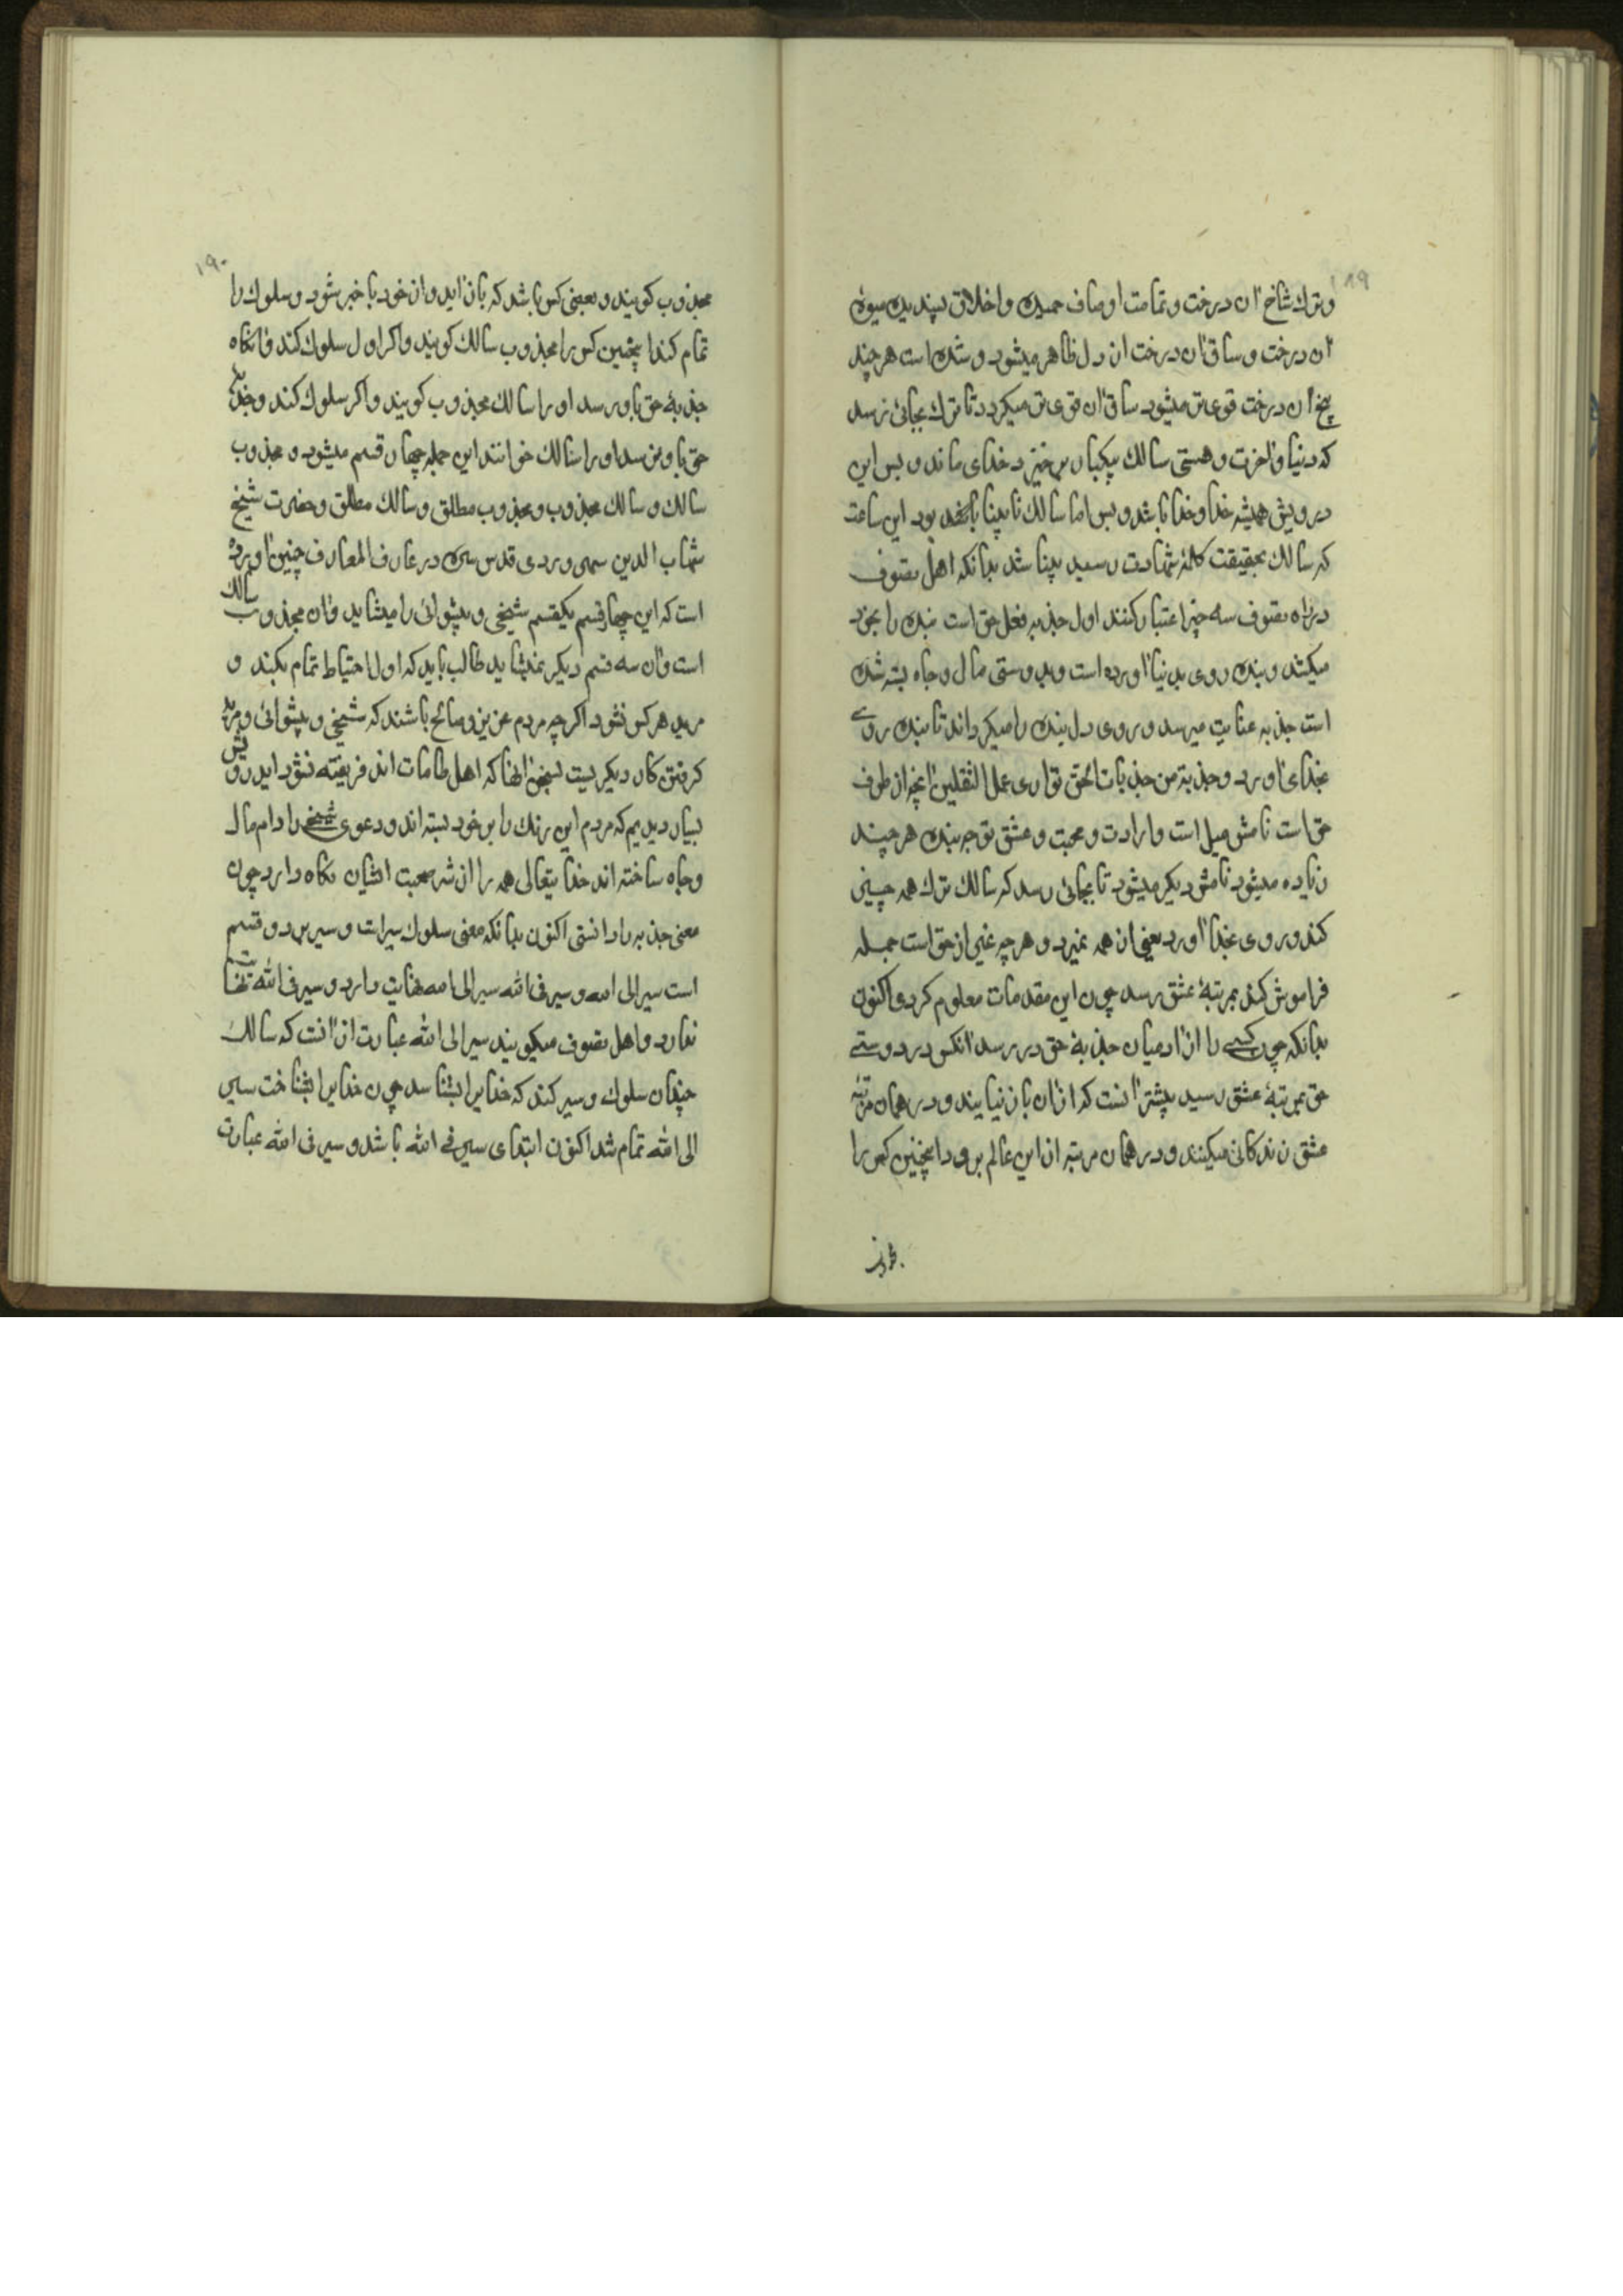 ۱۸۹
وترك شاخ آن درخت وتمامت اوصاف حمیده واخلاق پسندیده میوۀ
آن درخت وساق آن درخت از دل ظاهر میشود و شده است هرچند
بیخ آن درخت قوی تر میشود ساق آن قوی تر میکردد تا ترك بجائی رسد
که دنیا وآخرت و هستی سالك بیکبار برخیزد خدای ماند و بس این
درویش همیشه خدا وخدا باشد و بس اما سالك نابینا بود این ساعت
که سالك بحقیقت کلمۀ شهادت رسید بینا شد بدانکه اهل تصوف
در راه تصوف سه چیز اعتبار کنند اول جذبه فعل حق است بنده را بخود
میکشد و بنده روی بدنیا آورده است و بدوستی مال و جاه بسته شده
است جذبه عنایت میرسد و روی دل بنده را میکرداند تا بنده روی
بخدای آورد وجذبة من جذبات الحق توازی عمل الثقلین آنچه از طرف
حق است نامش میل است وارادت و محبت و عشق توجه بنده هرچند
زیاده میشود نامش دیکر میشود تا بجائی رسد که سالك ترك همه چیز
کند و روی بخدا آورد یعنی از همه و هرچه غیر از حق است جمله
فراموش کند بمرتبۀ عشق رسد چون این مقدمات معلوم کردی اکنون
بدانکه چون کسی را از آدمیان جذبۀ حق در رسد آنکس در دوستی
حق بمرتبۀ عشق رسید بیشتر آنست که از آن باز نیایند و در همان مرتبۀ
عشق زندکانی میکنند و در همان مرتبه از این عالم برود اینچنین کس را
۱۹۰
مجذوب کویند و بعضی کس باشد که باز آید واز خود با خبر شود و سلوك را
تمام کند اینچنین کس را مجذوب سالك کویند واکر اول سلوك کند وآنکاه
جذبۀ حق باو رسد او را سالك مجذوب کویند واکر سلوك کند وجذبۀ
حق باو نرسد او را سالك خوانند این جمله چهار قسم میشود مجذوب
سالك و سالك مجذوب و مجذوب مطلق و سالك مطلق و حضرت شیخ
شهاب الدین سهروردی قدس سره در عارف المعارف چنین آورده
است که این چهار قسم یکقسم شیخی و پیشوائی را میشاید وآن مجذوب سالك
است وآن سه قسم دیکر نمیشاید طالب باید که اول احتیاط تمام بکند و
مرید هر کس نشود اکرچه مردم عزیز وصالح باشند که شیخی و پیشوائی و مرید
کرفتن کار دیکریست بسخن آنها که اهل طامات اند فریفته نشود ایدرویش
بسیار دیدیم که مردم این رنك را بر خود بسته اند و دعوی شیخی را دام مال
وجاه ساخته اند خدا یتعالی همه را از شر صحبت ایشان نکاه دارد چون
معنی جذبه را دانستی اکنون بدانکه معنی سلوك سیراست و سیر بر دو قسم
است سیر الی الله و سیر فی الله سیر الی الله نهایت دارد و سیر فی الله نهایت
ندارد واهل تصوف میکویند سیر الی الله عبارت از آنست که سالك
چندان سلوك و سیر کند که خدایرا بشناسد چون خدایرا بشناخت سیر
الی الله تمام شد اکنون ابتدای سیر فی الله باشد و سیر فی الله عبارت